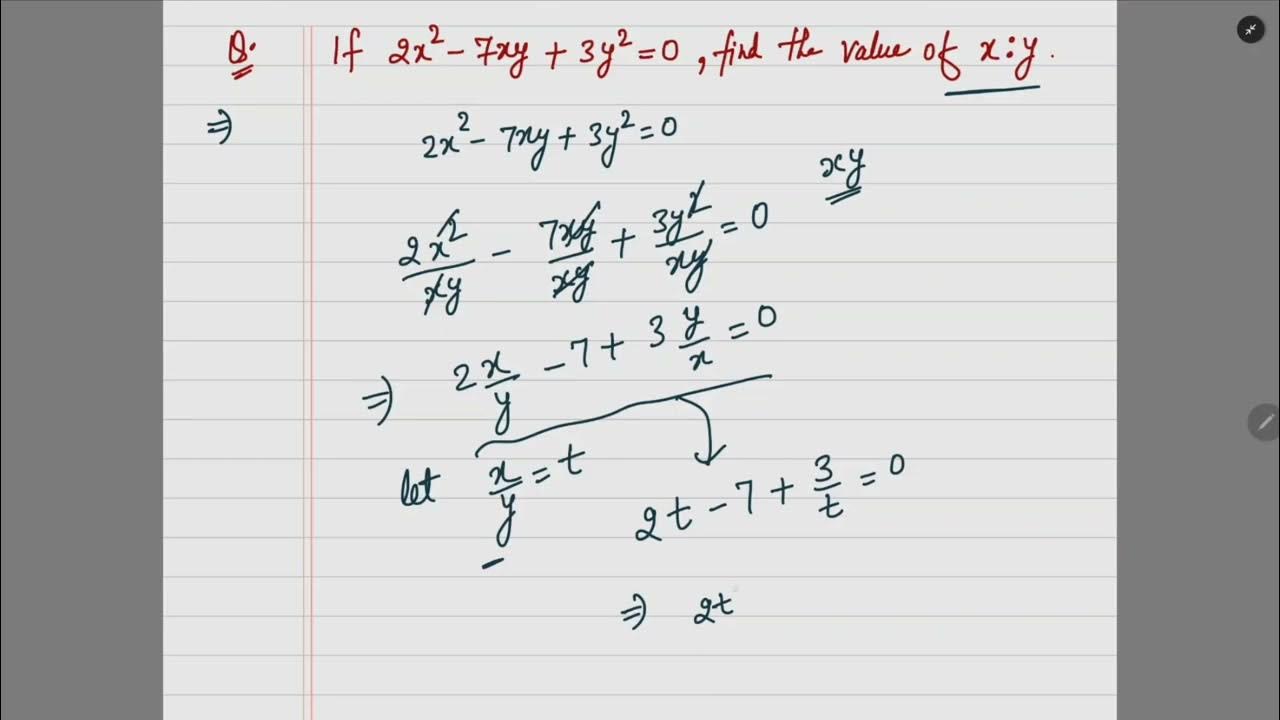 Q. If 2x² - 7xy + 3y² = 0, find the value of x:y.
⇒ 2x² - 7xy + 3y² = 0
xy
2x²/xy - 7xy/xy + 3y²/xy = 0
⇒ 2 x/y - 7 + 3 y/x = 0
let x/y = t
2t - 7 + 3/t = 0
⇒ 2t